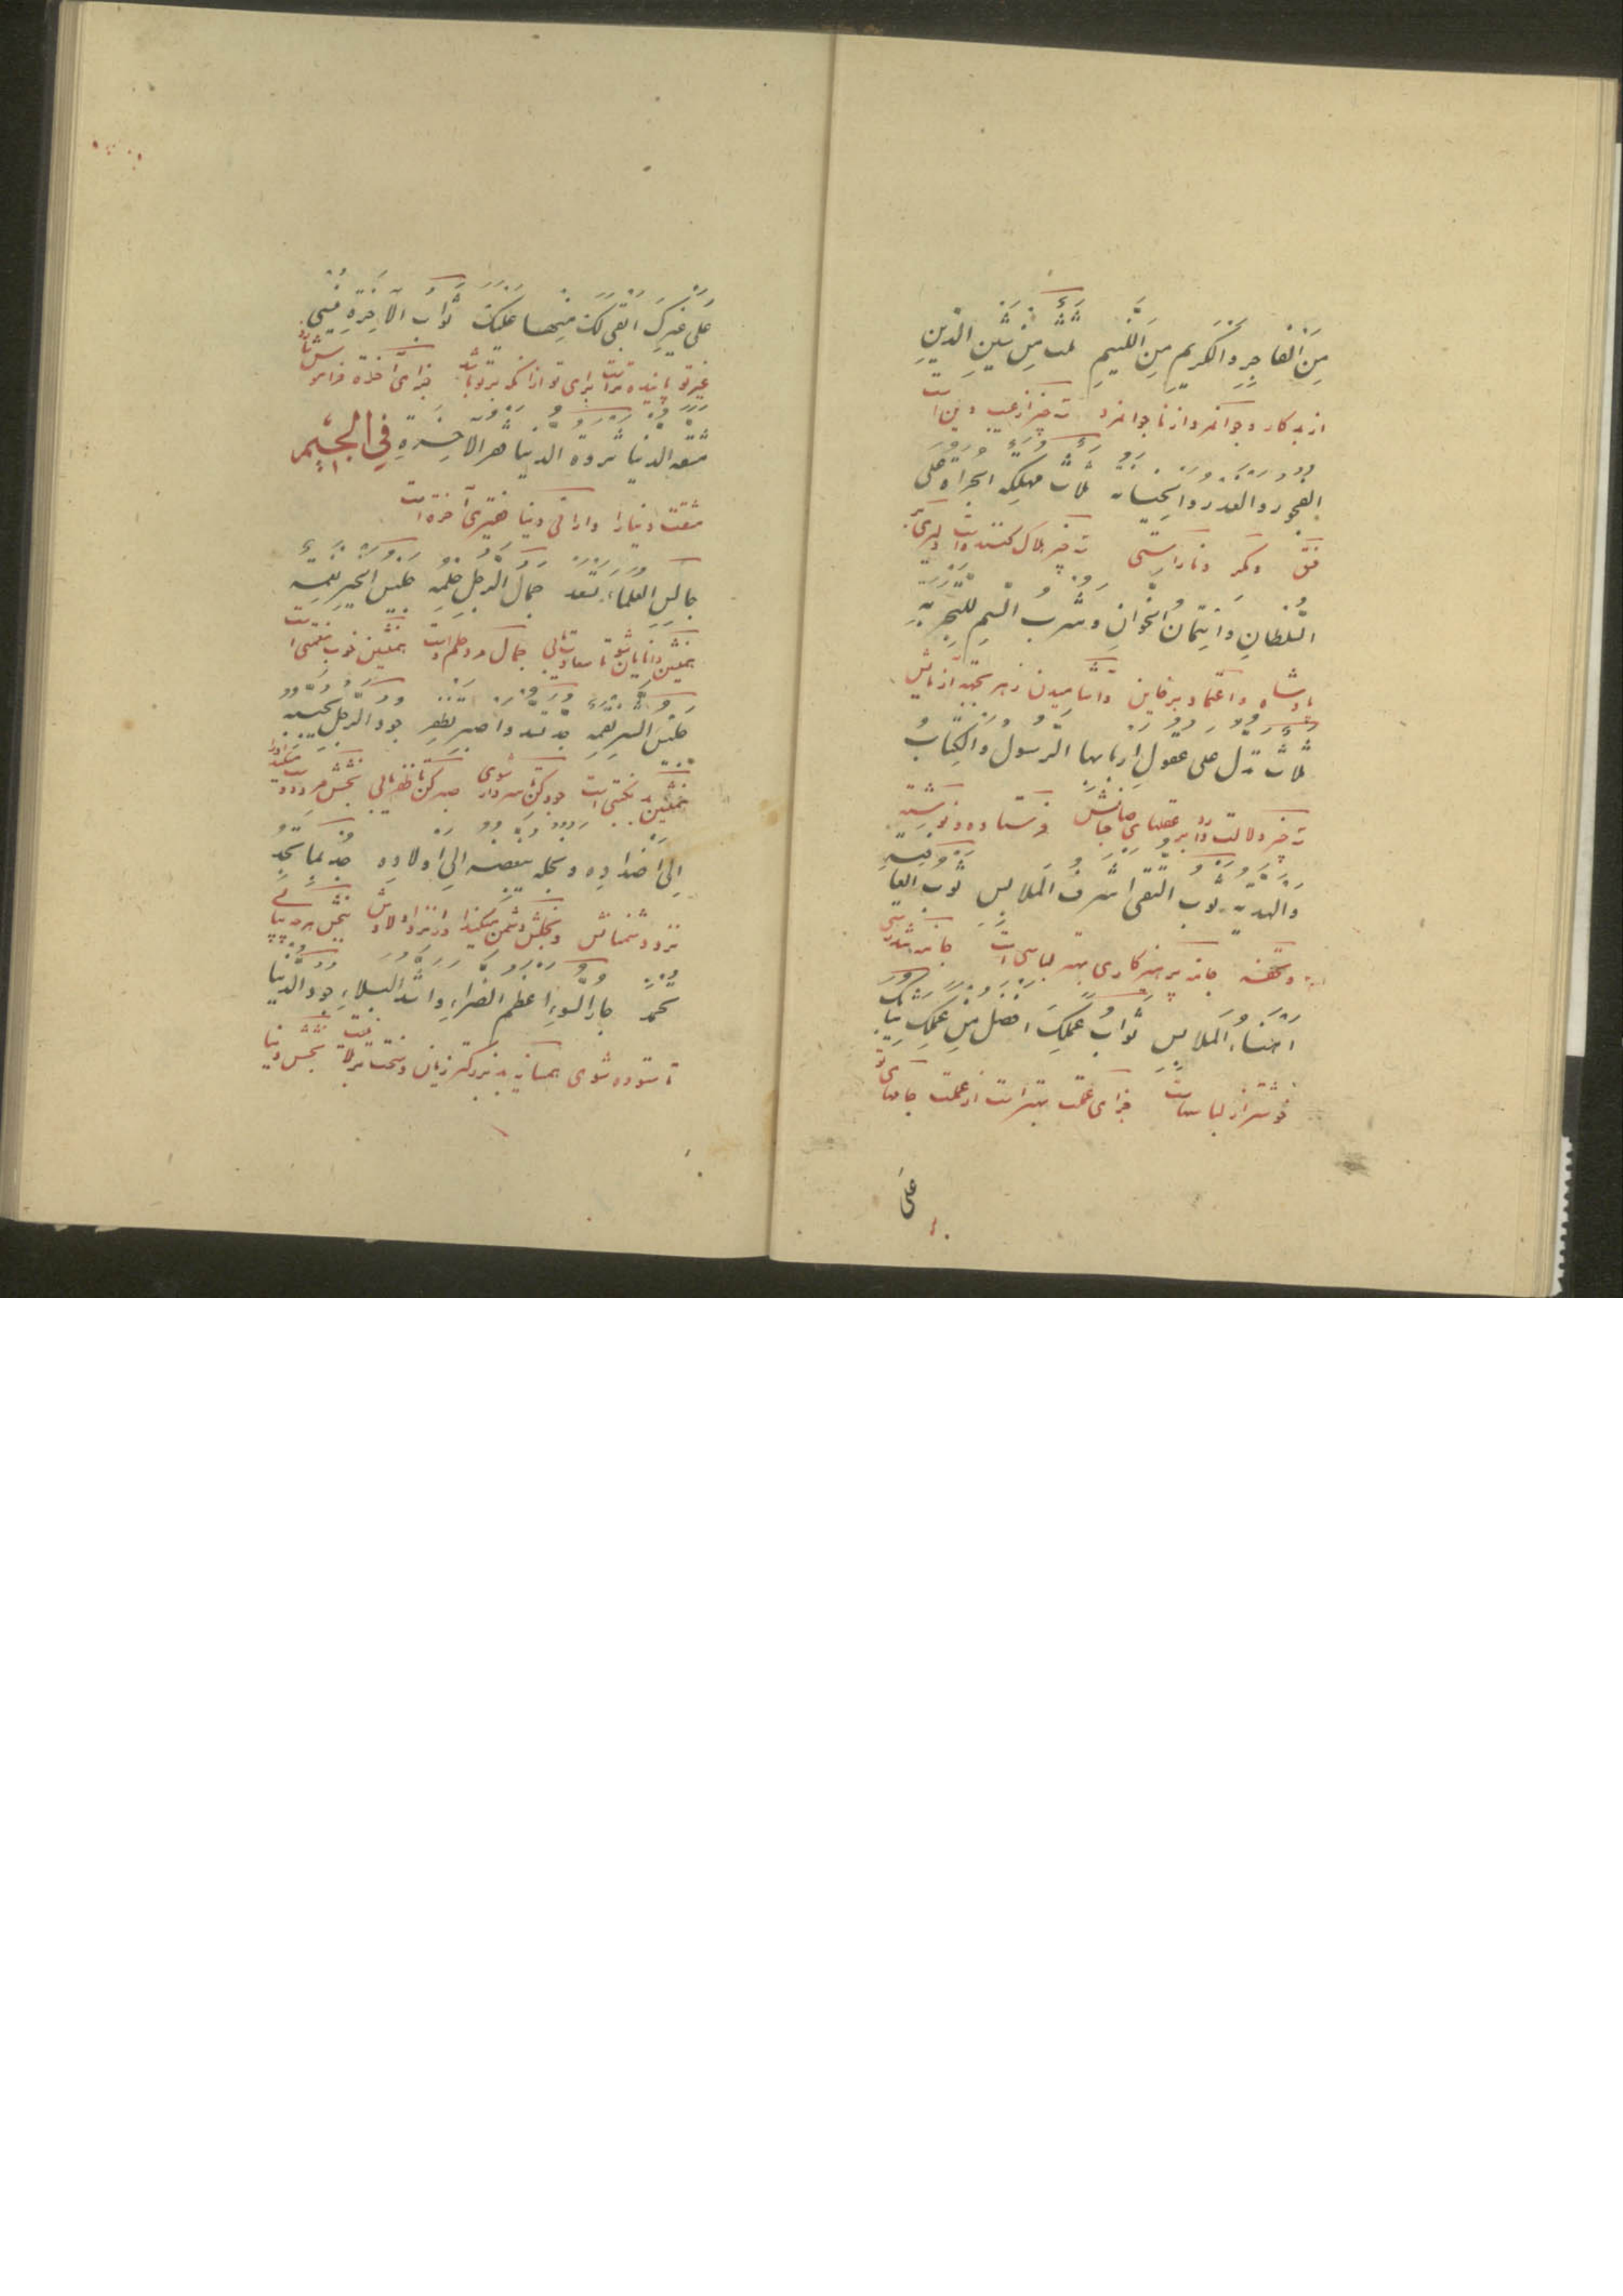 مِنَ الْفَاجِرِ وَالْكَرِيمِ مِنَ اللَّئِيمِ ثَلَاثٌ مِنْ شَيْنِ الدِّينِ
از بدکار و جوانمرد از ناجوانمرد سه چیز از عیب دین است
الفجور والغدر والخيانة ثلاث مهلكة الجرأة على
فسق و مکر و ناراستی سه چیز هلاک کننده است دلیری بر
السُّلطانِ وَائتِمانُ الخَوّانِ وَشُربُ السَّمِ لِلتَّجرِبَةِ
پادشاه و اعتماد بر خاین و آشامیدن زهر بجهة آزمایش
ثلاث تدل على عقول اربابها الرسول والكتاب
سه چیز دلالت دارد بر عقلهای صاحبانش فرستاده و نوشته
والهدية ثوب التقى اشرف الملابس ثوب العافية
و تحفه جامه پرهیزکاری بهتر لباسی است جامه تندرستی
اهنأ الملابس ثَوابُ عَمَلِكَ افضل مِن عَمَلِك ثيابك
خوشتر از لباسهاست جزای عملت بهتر است از عملت جامهای تو
على
عَلى غَيرِكَ ابقى لك مِنها عليك ثواب الآخِرَةِ يُنسي
غیر تو پاینده تر است برای تو از آنکه بر تو باشد جزای آخرة فراموش سازد
مشقة الدنيا ثروة الدنيا فقر الآخِرَةِ فِي الْجِيمِ
مشقت دنیا را دارائی دنیا فقیری آخرة است
جالس العلماء تسعد جمال الرجل حلمه جليس الخير نعمة
همنشین دانایان شو تا سعادت یابی جمال مرد حلم اوست همنشین خوب نعمتی است
جليس السوء نقمة جد تسد واصبر تظفر جود الرجل يحببه
همنشین بد نکبتی است جود کن تا سردار شوی صبر کن تا ظفر یابی بخشش مرد دوست میکند او را
الى اضداده وبخله يبغضه الى اولاده جد بما تجد
نزد دشمنانش و بخلش دشمن میکند او را نزد اولادش بخشش کن بهرچه بیابی
تحمد جار السوء اعظم الضراء واشد البلاء جود الدنيا
تا ستوده شوی همسایه بد بزرگتر زیان و سخت تر بلائیست بخشش دنیا